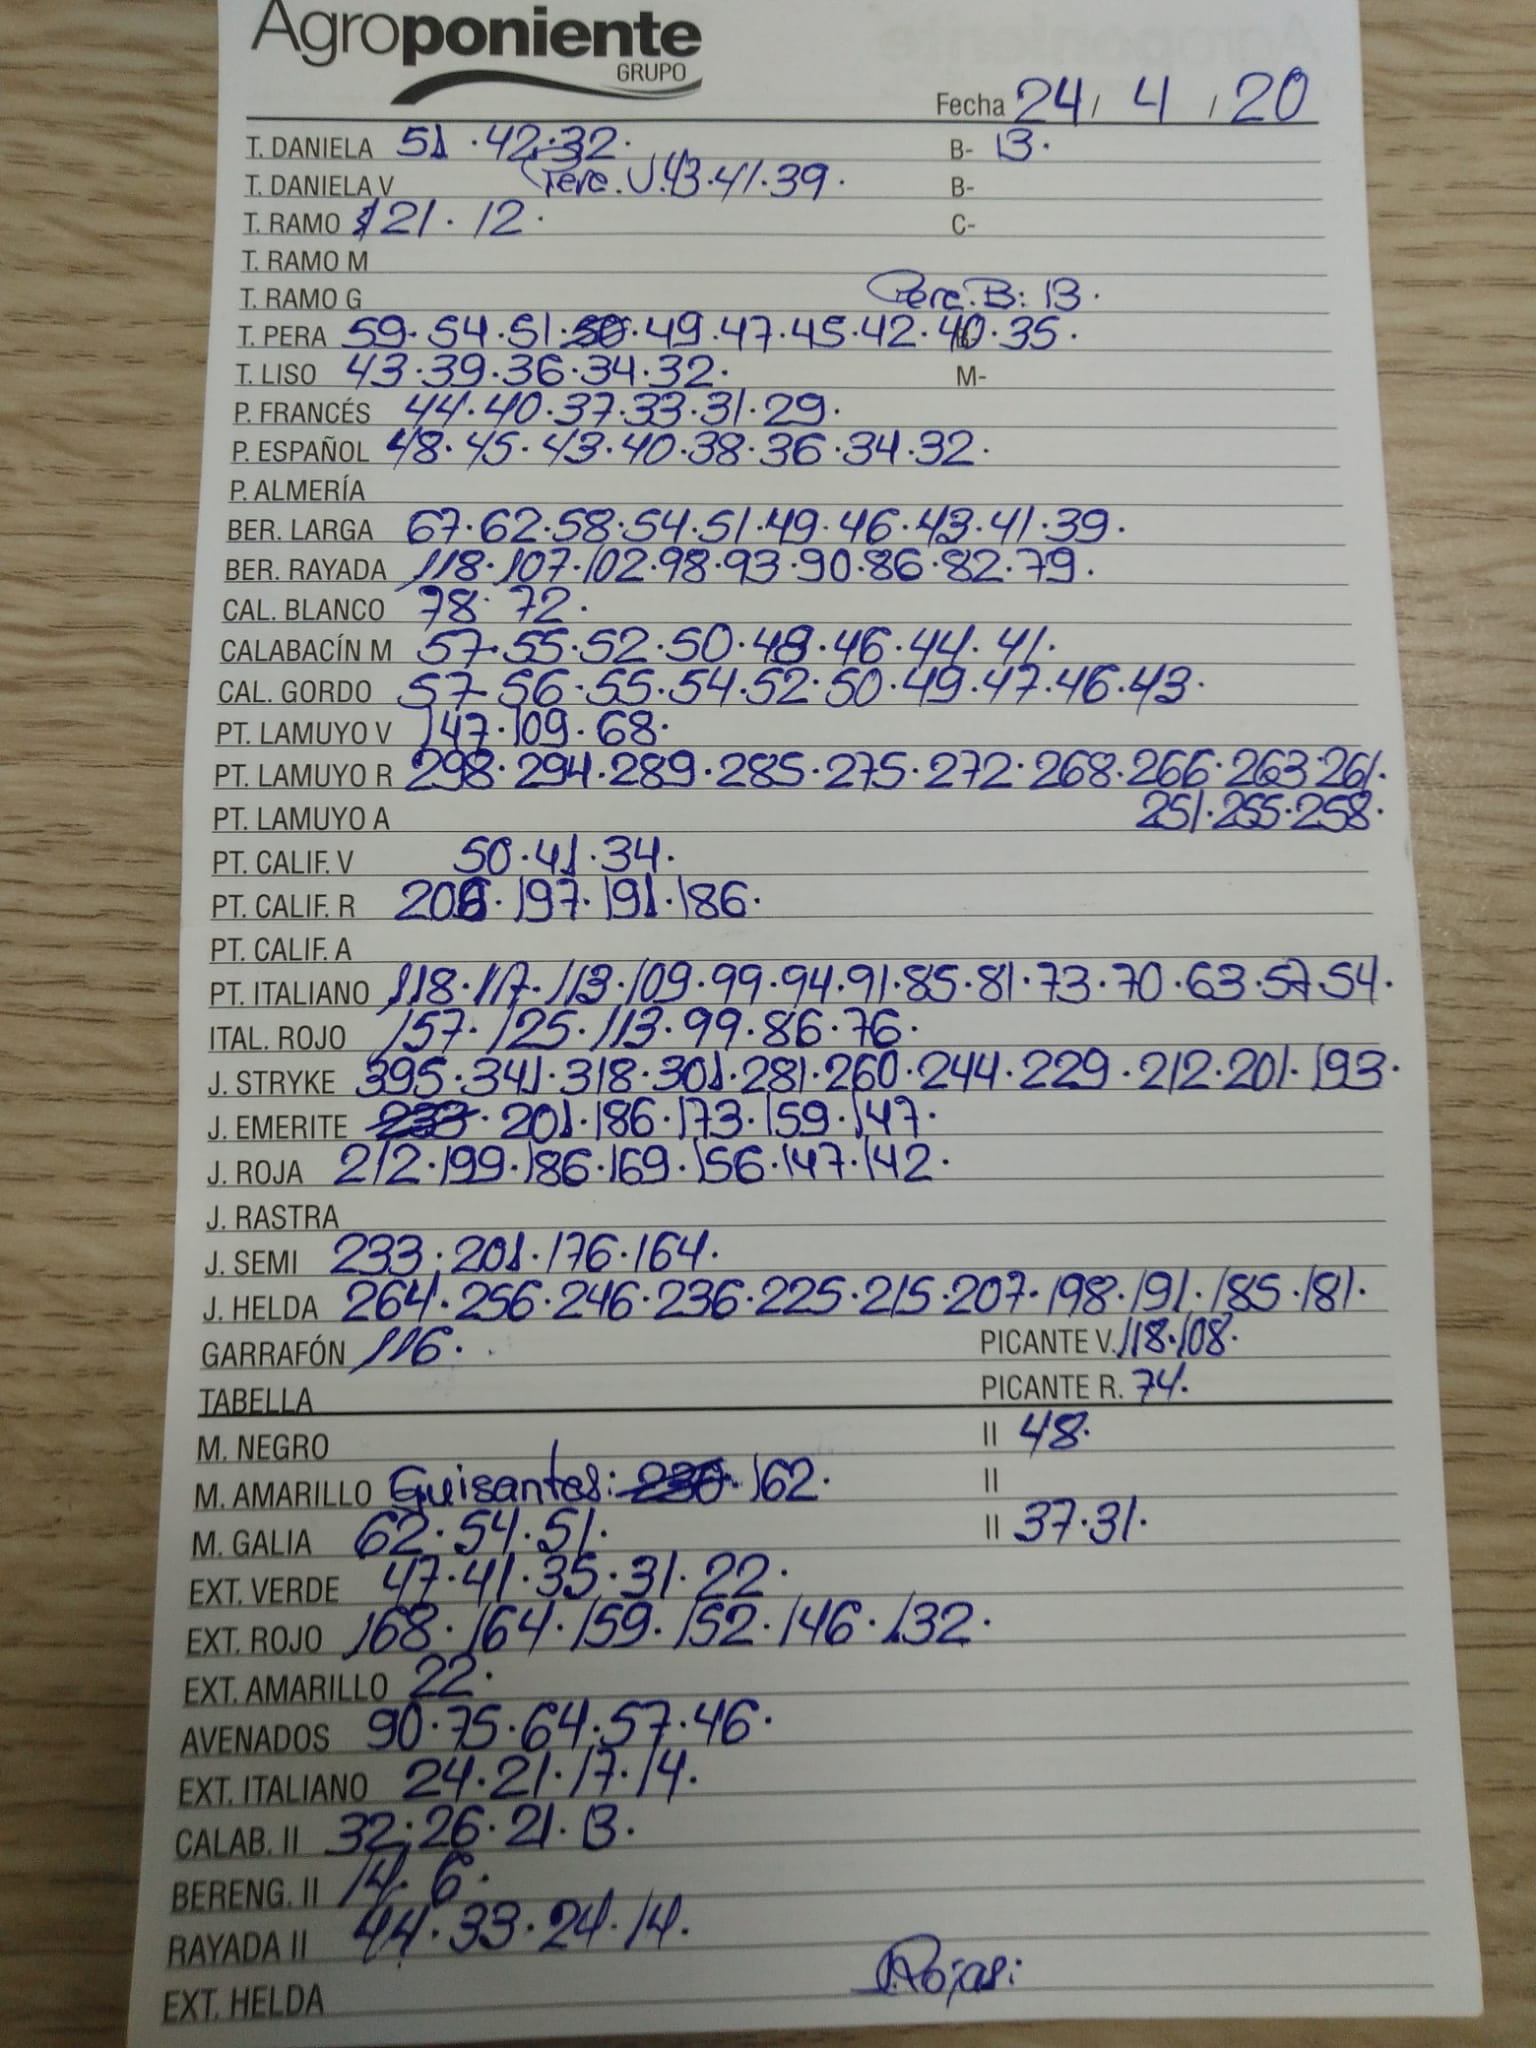 Agroponiente
GRUPO
Fecha 24 / 4 / 20
T. DANIELA 51 . 42 . 32 . B- 13 .
T. DANIELA V Pera. V. 43 . 41 . 39 . B-
T. RAMO 21 . 12 . C-
T. RAMO M
T. RAMO G Pera. B: 13 .
T. PERA 59 . 54 . 51 . 50 . 49 . 47 . 45 . 42 . 40 . 35 .
T. LISO 43 . 39 . 36 . 34 . 32 . M-
P. FRANCÉS 44 . 40 . 37 . 33 . 31 . 29 .
P. ESPAÑOL 48 . 45 . 43 . 40 . 38 . 36 . 34 . 32 .
P. ALMERÍA
BER. LARGA 67 . 62 . 58 . 54 . 51 . 49 . 46 . 43 . 41 . 39 .
BER. RAYADA 118 . 107 . 102 . 98 . 93 . 90 . 86 . 82 . 79 .
CAL. BLANCO 78 . 72 .
CALABACÍN M 57 . 55 . 52 . 50 . 48 . 46 . 44 . 41 .
CAL. GORDO 57 . 56 . 55 . 54 . 52 . 50 . 49 . 47 . 46 . 43 .
PT. LAMUYO V 147 . 109 . 68 .
PT. LAMUYO R 298 . 294 . 289 . 285 . 275 . 272 . 268 . 266 . 263 . 261 .
PT. LAMUYO A 251 . 255 . 258 .
PT. CALIF. V 50 . 41 . 34 .
PT. CALIF. R 206 . 197 . 191 . 186 .
PT. CALIF. A
PT. ITALIANO 118 . 117 . 113 . 109 . 99 . 94 . 91 . 85 . 81 . 73 . 70 . 63 . 57 . 54 .
ITAL. ROJO 157 . 125 . 113 . 99 . 86 . 76 .
J. STRYKE 395 . 341 . 318 . 301 . 281 . 260 . 244 . 229 . 212 . 201 . 193 .
J. EMERITE 233 . 201 . 186 . 173 . 159 . 147 .
J. ROJA 212 . 199 . 186 . 169 . 156 . 147 . 142 .
J. RASTRA
J. SEMI 233 . 201 . 176 . 164 .
J. HELDA 264 . 256 . 246 . 236 . 225 . 215 . 207 . 198 . 191 . 185 . 181 .
GARRAFÓN 116 . PICANTE V. 118 . 108 .
TABELLA PICANTE R. 74 .
M. NEGRO II 48 .
M. AMARILLO Guisantes: 230 . 162 . II
M. GALIA 62 . 54 . 51 . II 37 . 31 .
EXT. VERDE 47 . 41 . 35 . 31 . 22 .
EXT. ROJO 168 . 164 . 159 . 152 . 146 . 132 .
EXT. AMARILLO 22 .
AVENADOS 90 . 75 . 64 . 57 . 46 .
EXT. ITALIANO 24 . 21 . 17 . 14 .
CALAB. II 32 . 26 . 21 . 13 .
BERENG. II 14 . 6 .
RAYADA II 44 . 33 . 24 . 14 .
EXT. HELDA Rojas: